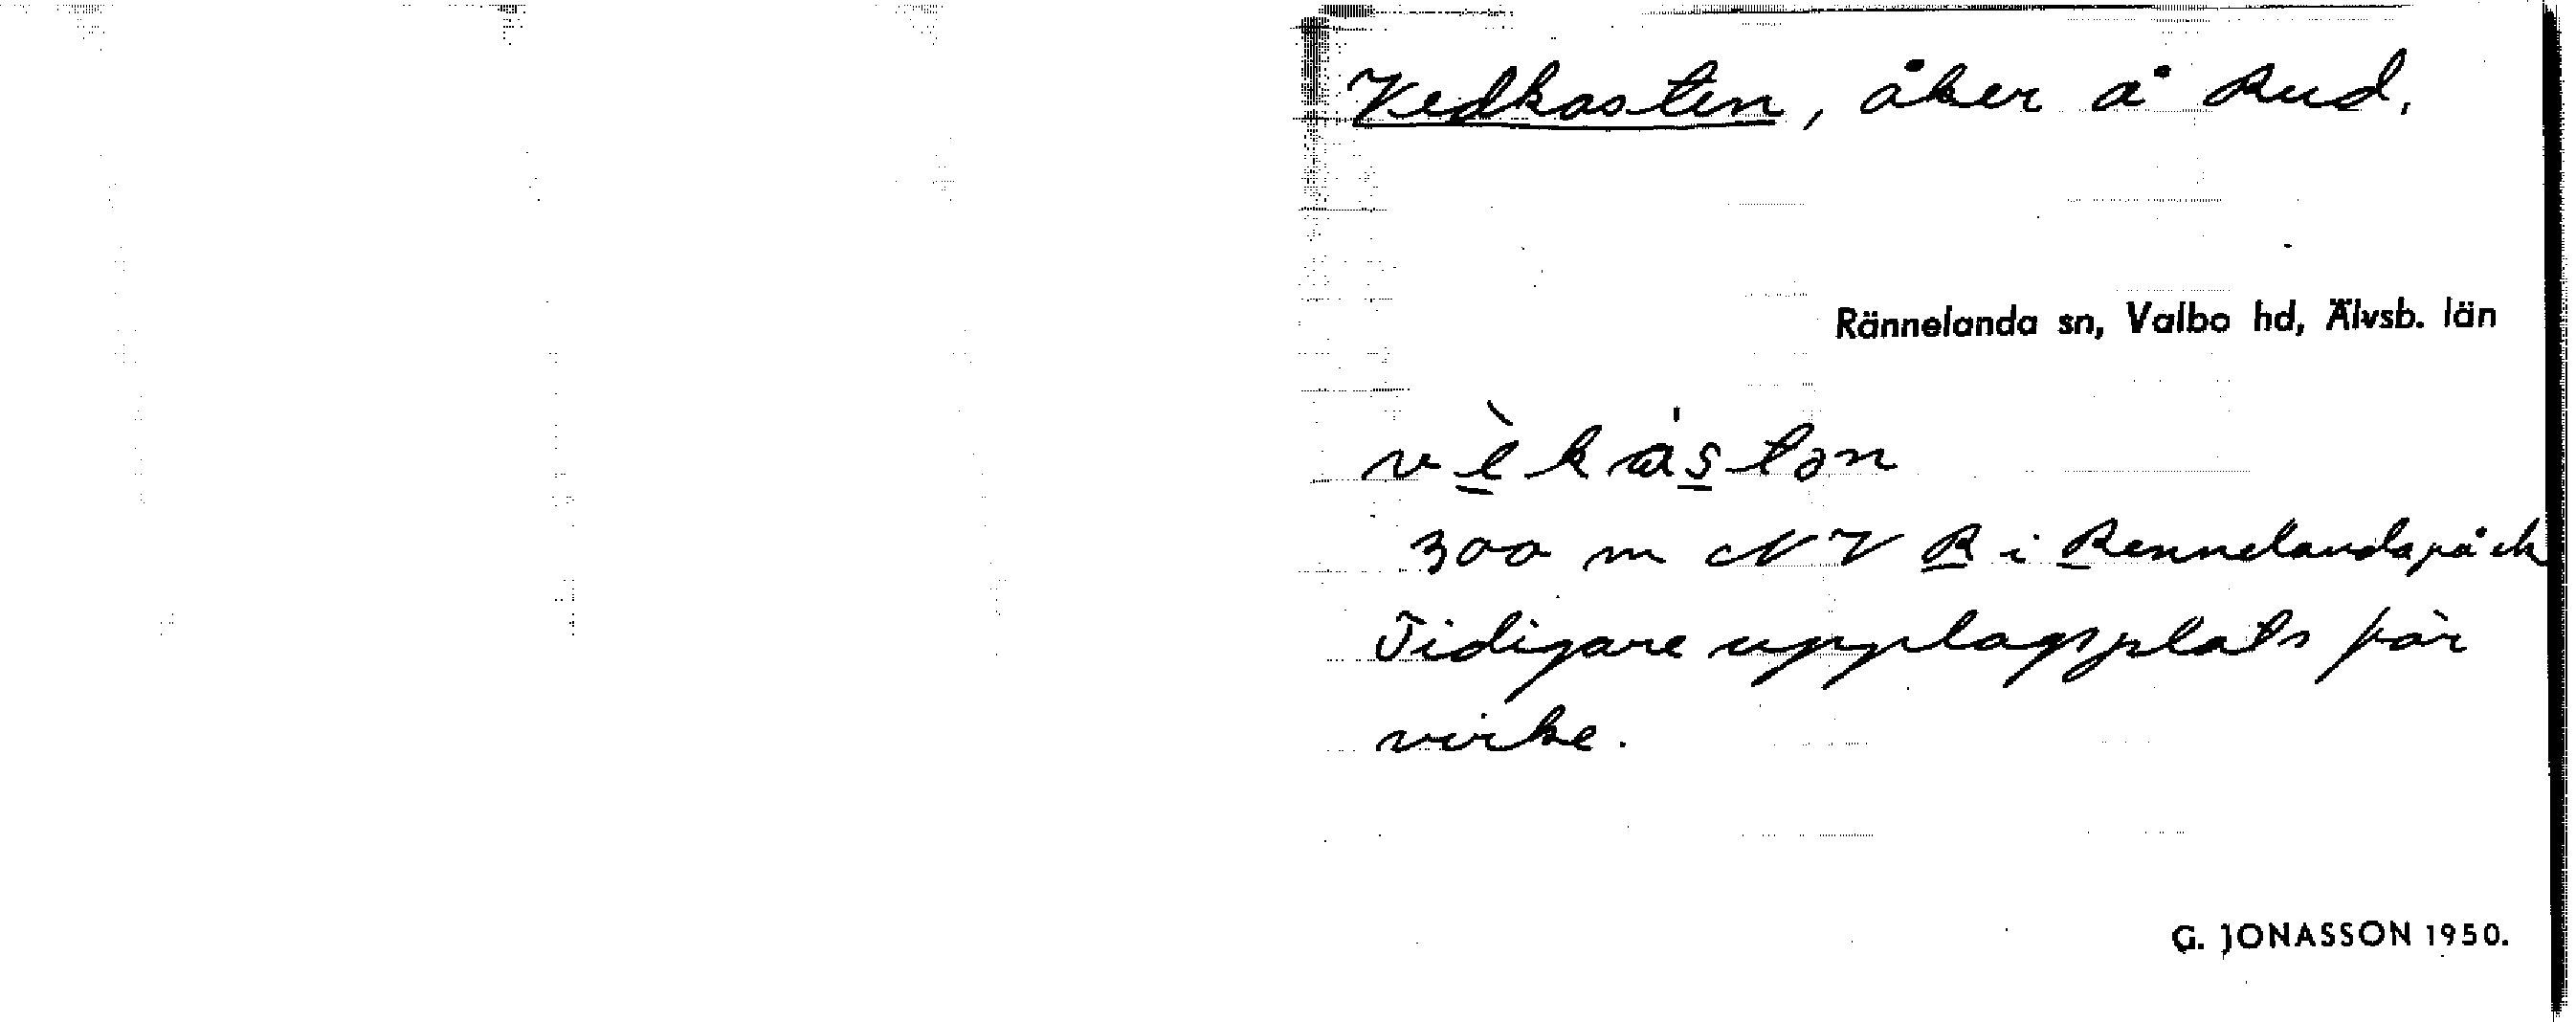 Vedkasten, åker å Rud.
Rännelanda sn, Valbo hd, Älvsb. län
vèkàstən
300 m NV R i Rennelanda
Tidigare upplagsplats för
virke.
G. JONASSON 1950.